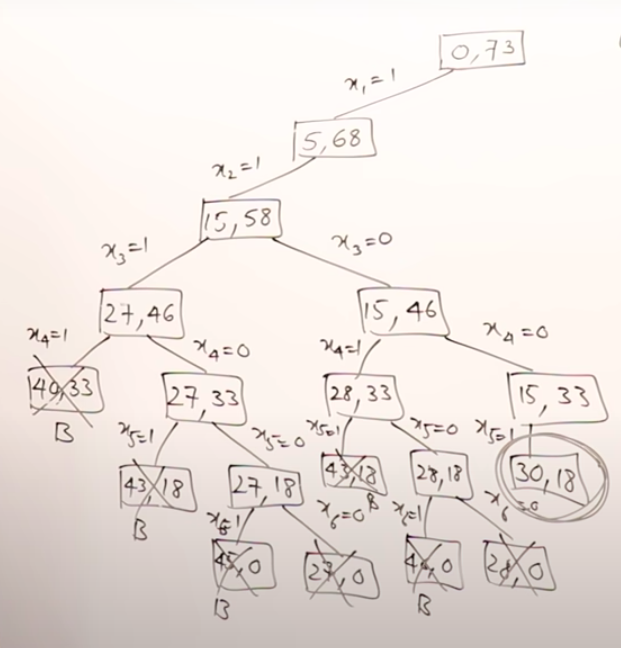 0,73
x₁=1
5,68
x₂=1
15,58
x₃=1 x₃=0
27,46 15,46
x₄=1 x₄=0 x₄=1 x₄=0
40,33 27,33 28,33 15,33
B x₅=1 x₅=0 x₅=1 x₅=0 x₅=1
43,18 27,18 43,18 28,18 30,18
B x₆=1 x₆=0 B x₆=1 x₆=0
45,0 27,0 ,0 28,0
B B